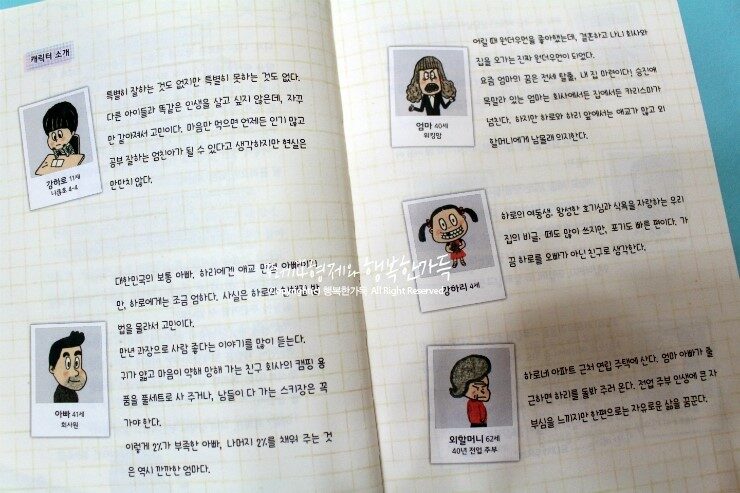 캐릭터 소개
특별히 잘하는 것도 없지만 특별히 못하는 것도 없다.
다른 아이들과 똑같은 인생을 살고 싶지 않은데, 자꾸
만 같아져서 고민이다. 마음만 먹으면 언제든 인기 많고
공부 잘하는 엄친아가 될 수 있다고 생각하지만 현실은
만만치 않다.
강하로 11세
나름초 4-4
대한민국의 보통 아빠. 하리에겐 애교 만점 아빠지
만, 하로에게는 조금 엄하다. 사실은 하로와
법을 몰라서 고민이다.
만년 과장으로 사람 좋다는 이야기를 많이 듣는다.
귀가 얇고 마음이 약해 망해 가는 친구 회사의 캠핑 용
품을 풀세트로 사 주거나, 남들이 다 가는 스키장은 꼭
가야 한다.
이렇게 2%가 부족한 아빠, 나머지 2%를 채워 주는 것
은 역시 깐깐한 엄마다.
아빠 41세
회사원
어릴 때 원더우먼을 좋아했는데, 결혼하고 나니 회사와
집을 오가는 진짜 원더우먼이 되었다.
요즘 엄마의 꿈은 전세 탈출, 내 집 마련이다! 승진에
목말라 있는 엄마는 회사에서든 집에서든 카리스마가
넘친다. 하지만 하로와 하리 앞에서는 애교가 많고 외
할머니에게 남몰래 의지한다.
엄마 40세
워킹맘
하로의 여동생. 왕성한 호기심과 식욕을 자랑하는 우리
집의 비글. 떼도 많이 쓰지만, 포기도 빠른 편이다. 가
끔 하로를 오빠가 아닌 친구로 생각한다.
강하리 4세
하로네 아파트 근처 연립 주택에 산다. 엄마 아빠가 출
근하면 하리를 돌봐 주러 온다. 전업 주부 인생에 큰 자
부심을 느끼지만 한편으로는 자유로운 삶을 꿈꾼다.
외할머니 62세
40년 전업 주부
행복한가득
행복한가득 All Right Reserved